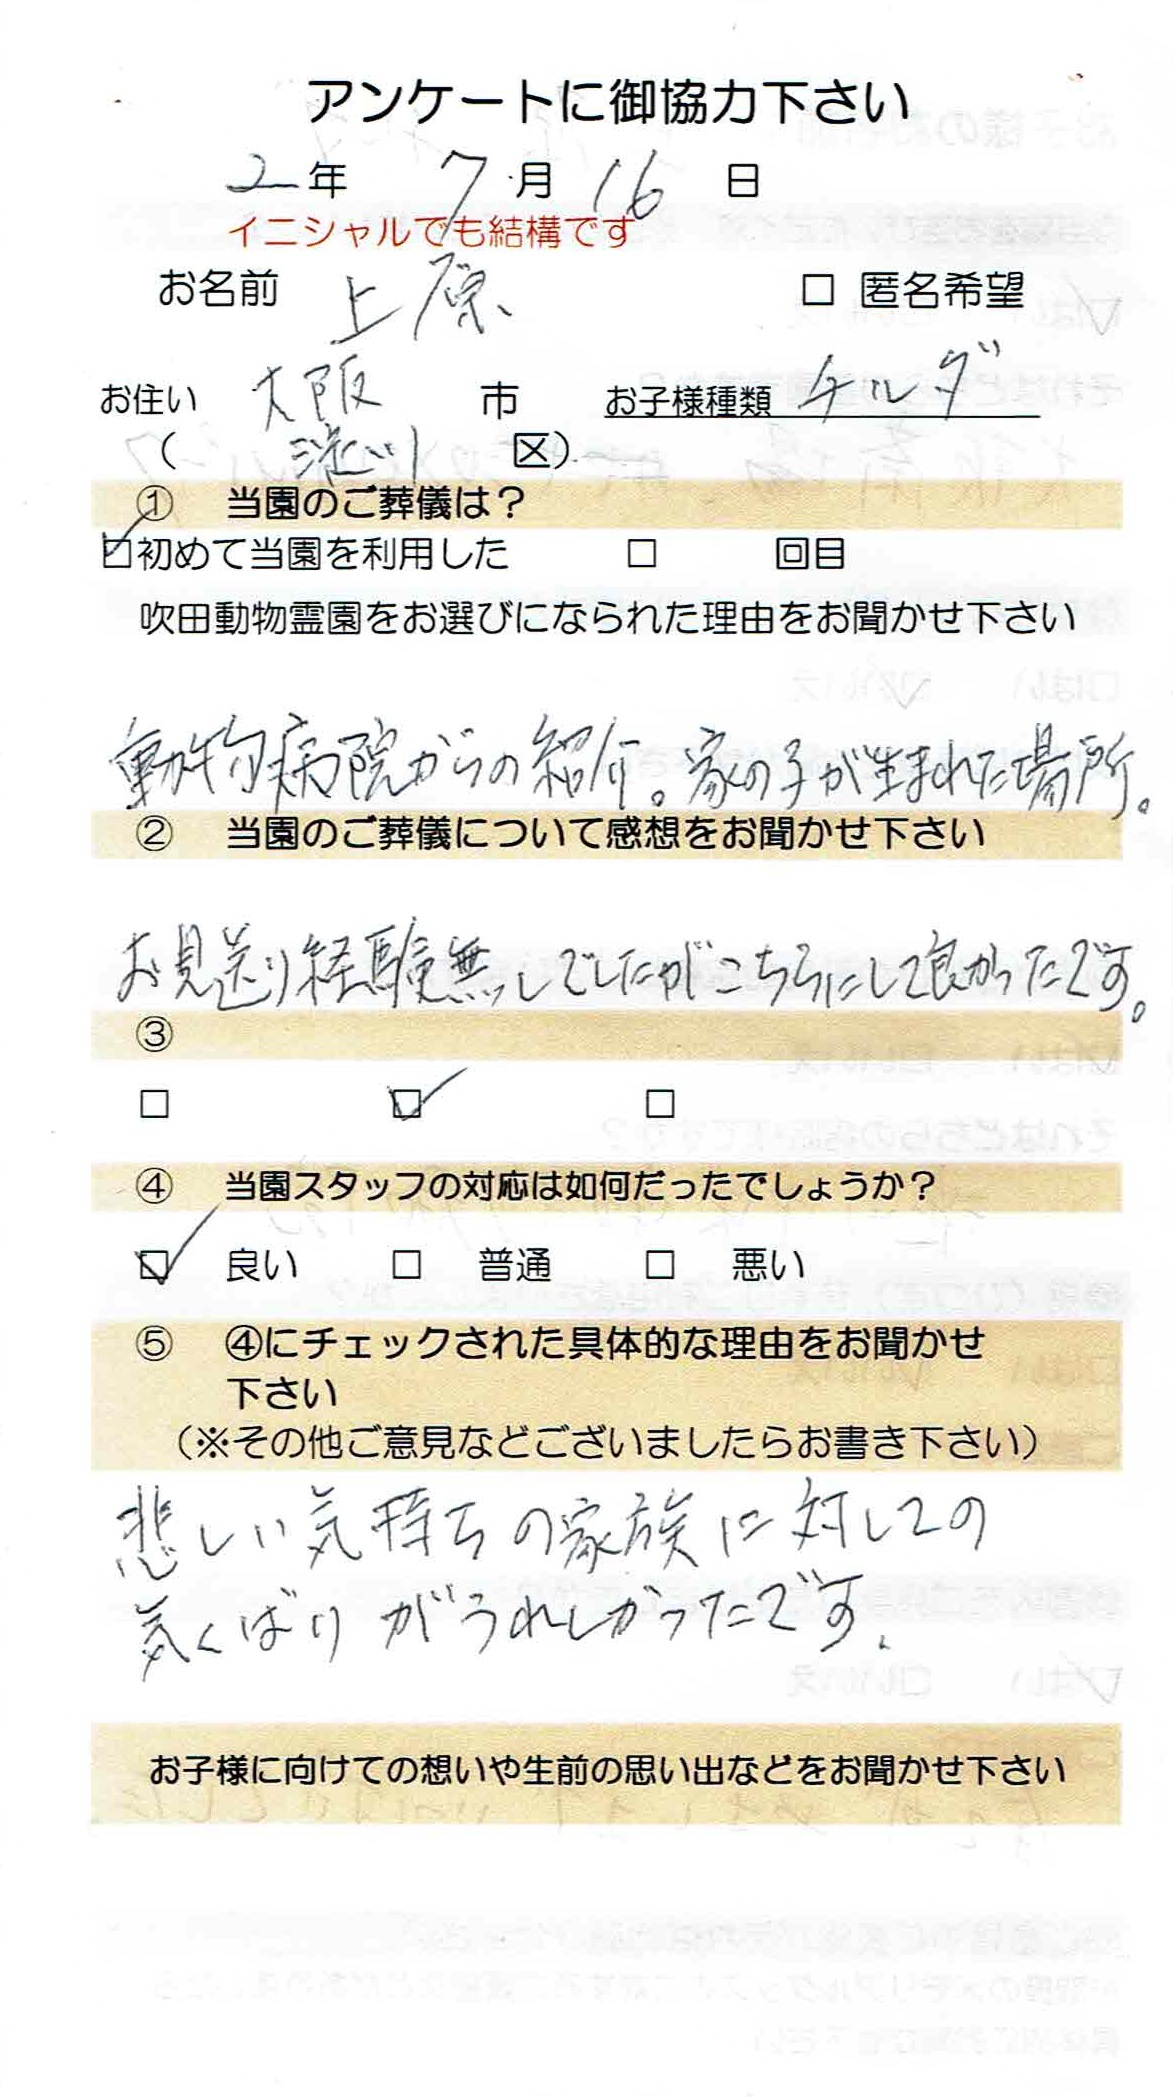 アンケートに御協力下さい
2年 7月 16日
イニシャルでも結構です
お名前 上原 □ 匿名希望
お住い 大阪 市 お子様種類 チルダ
( 淀川 区)
① 当園のご葬儀は？
☑初めて当園を利用した □ 回目
吹田動物霊園をお選びになられた理由をお聞かせ下さい
動物病院からの紹介。家の子が生まれた場所。
② 当園のご葬儀について感想をお聞かせ下さい
お見送り経験無しでしたがこちらにして良かったです。
③
□ ☑ □
④ 当園スタッフの対応は如何だったでしょうか？
☑ 良い □ 普通 □ 悪い
⑤ ④にチェックされた具体的な理由をお聞かせ
下さい
（※その他ご意見などございましたらお書き下さい）
悲しい気持ちの家族に対しての
気くばりがうれしかったです。
お子様に向けての想いや生前の思い出などをお聞かせ下さい